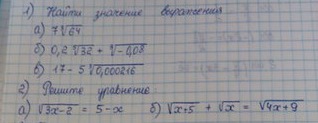 1) Найти значение выражения
а) 7√64
б) 0,2√32 + √-0,08
в) 17 - 5√0,000216
2) Решите уравнение:
а) √3x-2 = 5-x б) √x+5 + √x = √4x+9